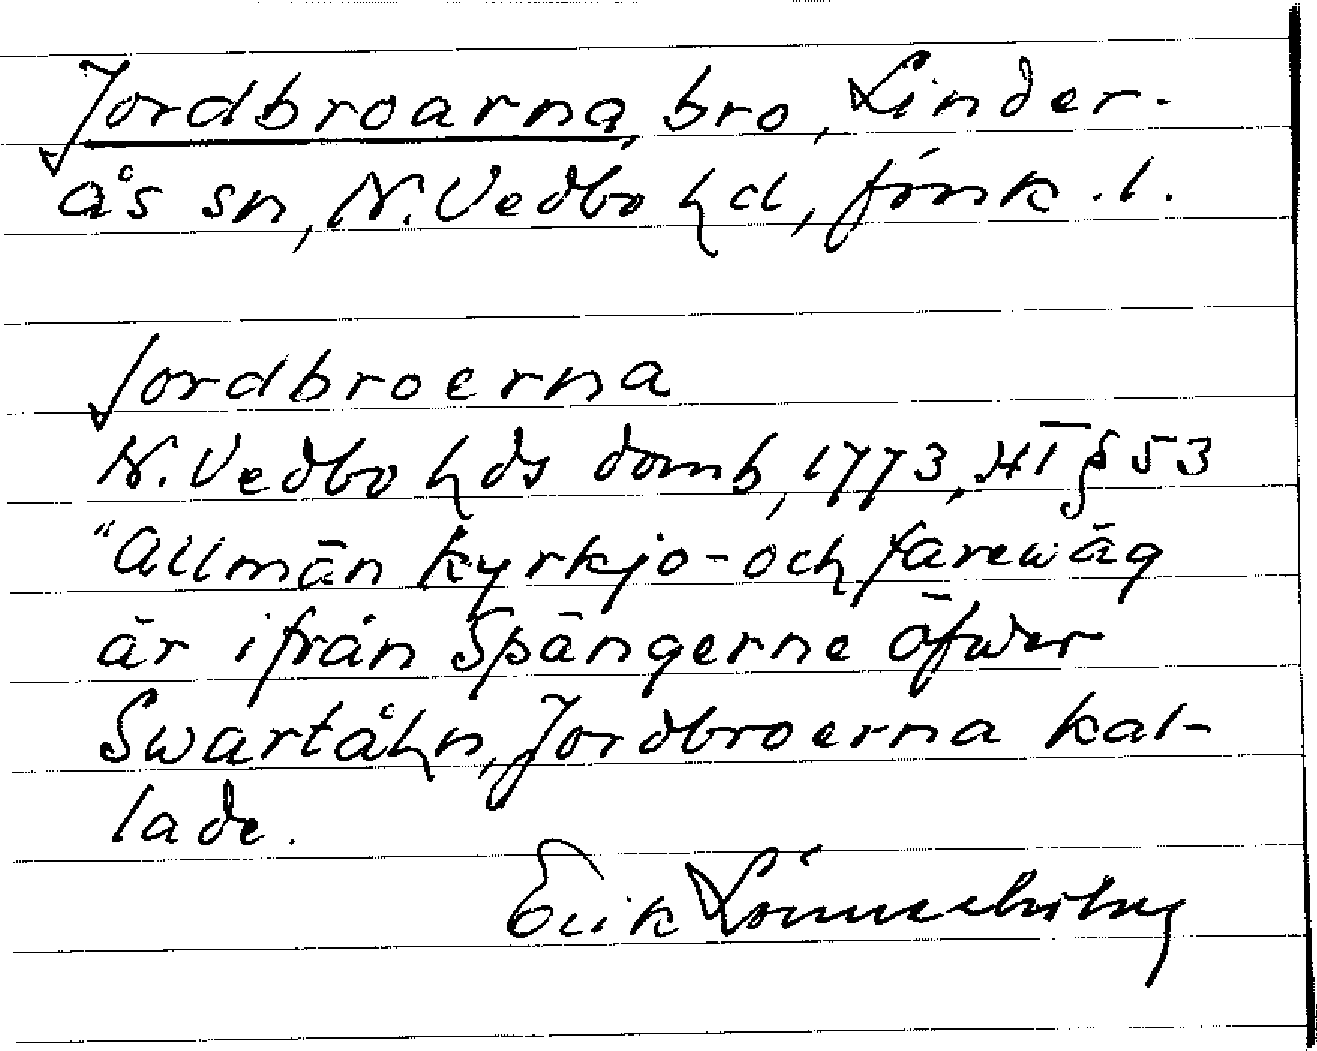 Jordbroarna, bro, Linder-
ås sn, N. Vedbo hd, Jönk. l.
Jordbroerna
N. Vedbo hds domb, 1773, HT § 53
"Allmän kyrkjo- och farewäg
är ifrån Spängerne öfwer
Swartåhn, Jordbroerna kal-
lade.
Erik